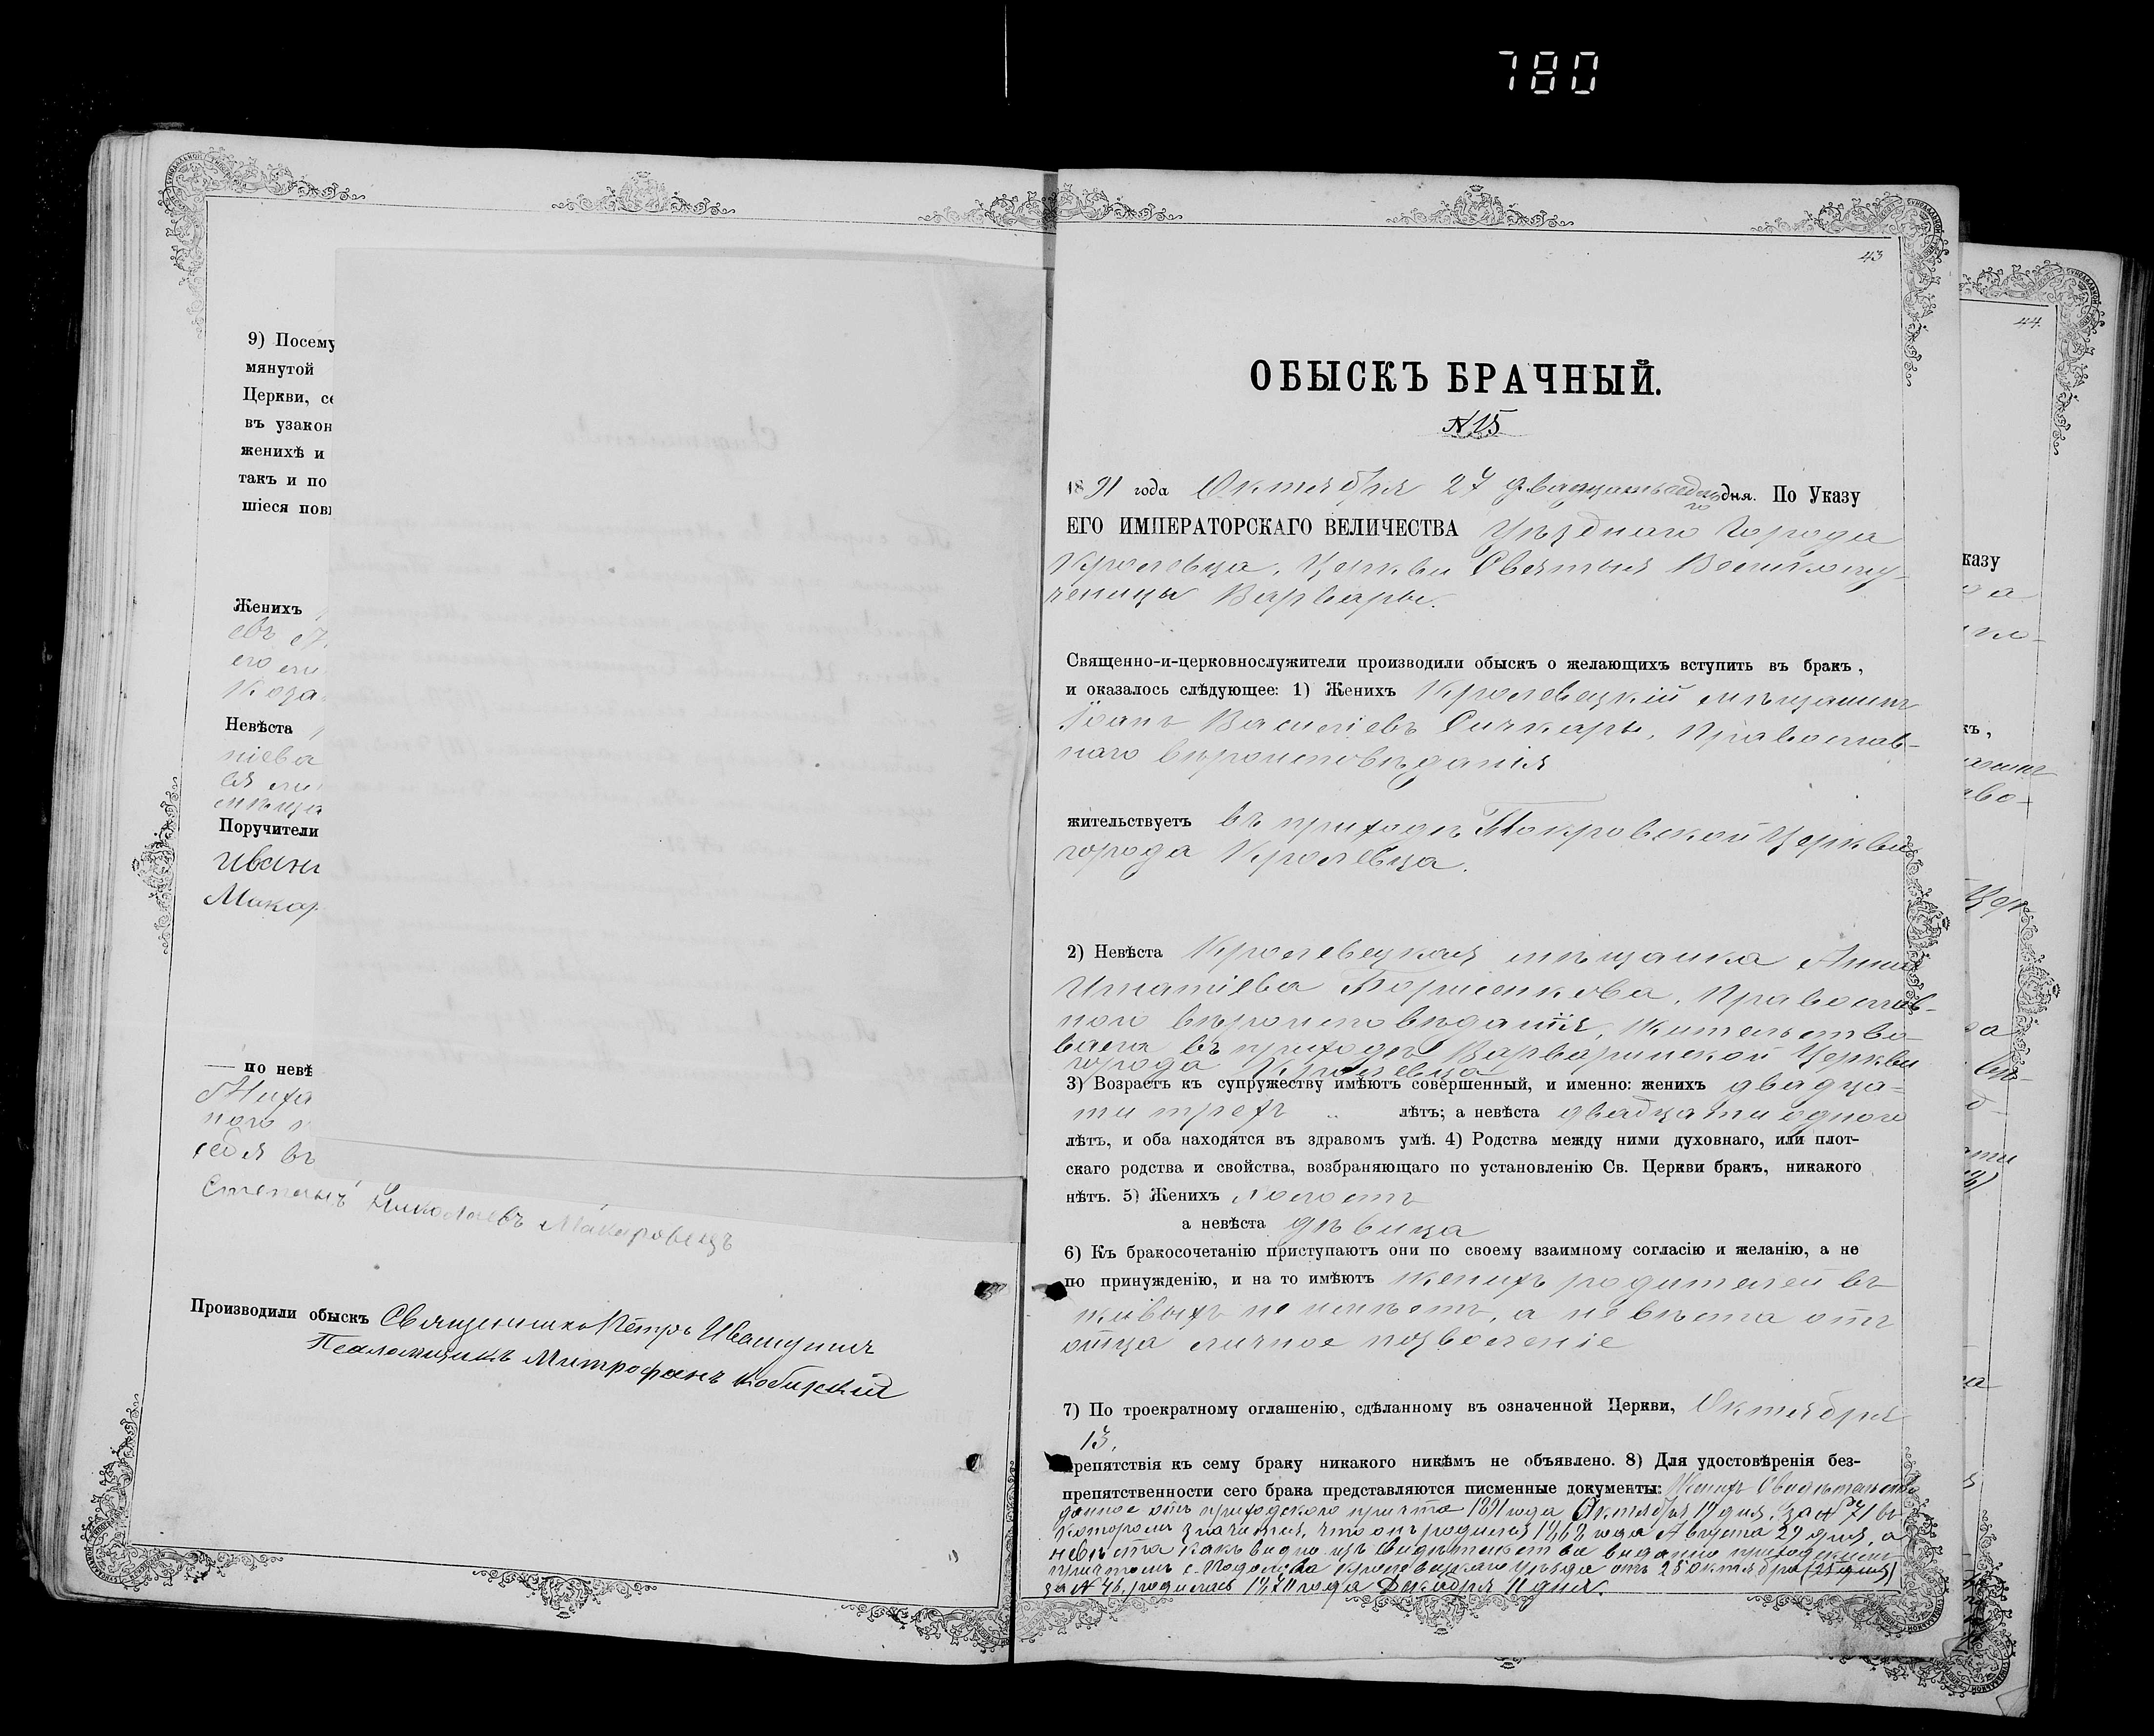 780
9) Посему
мянутой
Церкви, се
въ узакон
женихѣ и
такъ и по
шіеся пов
Женихъ
евъ
его
Коза
Невѣста
ніева
Поручители
Иванъ
Макар
— по невѣ
Миха
ного
себя въ
Степанъ Николаевъ Макаровецъ
Производили обыскъ Священникъ Петръ
Псаломщикъ Митрофанъ
43
ОБЫСКЪ БРАЧНЫЙ.
№ 15
1891 года Октября 27 двадцать седьмого дня. По Указу
ЕГО ИМПЕРАТОРСКАГО ВЕЛИЧЕСТВА Уѣзднаго города
Кролевца, Церкви Святыя Великому-
ченицы Варвары.
Священно-и-церковнослужители производили обыскъ о желающихъ вступить въ бракъ,
и оказалось слѣдующее: 1) Женихъ Кролевецкій мѣщанинъ
Іоанъ Василіевъ Сичкарь, Православ-
наго вѣроисповѣданія
жительствуетъ въ приходѣ Покровской Церкви
города Кролевца.
2) Невѣста Кролевецкая мѣщанка Анна
Игнатіева Борисенкова, Православ-
ного вѣроисповѣданія, жительство-
ваетъ въ приходѣ Варваринской Церкви
города Кролевца
3) Возрастъ къ супружеству имѣютъ совершенный, и именно: женихъ двадца-
ти трехъ лѣтъ; а невѣста двадцати одного
лѣтъ, и оба находятся въ здравомъ умѣ. 4) Родства между ними духовнаго, или плот-
скаго родства и свойства, возбраняющаго по установленію Св. Церкви бракъ, никакого
нѣтъ. 5) Женихъ холостъ
а невѣста дѣвица
6) Къ бракосочетанію приступаютъ они по своему взаимному согласію и желанію, а не
по принужденію, и на то имѣютъ женихъ родителей въ
живыхъ не имѣетъ, а невѣста отъ
отца личное позволеніе
7) По троекратному оглашенію, сдѣланному въ означенной Церкви, Октября
13,
препятствія къ сему браку никакого никѣмъ не объявлено. 8) Для удостовѣренія без-
препятственности сего брака представляются писменные документы: Женихъ Свидѣтельство
данное отъ приходского причта 1891 года Октября 19 дня, за № 71 въ
которомъ значится, что онъ родился 1868 года Августа 29 дня, а
невѣста какъ видно изъ свидѣтельства выданно приходскимъ
причтомъ с. Подолова Кролевецкаго уѣзда отъ 25 октября (25 дня)
за № 46, родилась 1870 года Декабря 11 дня.
44
казу